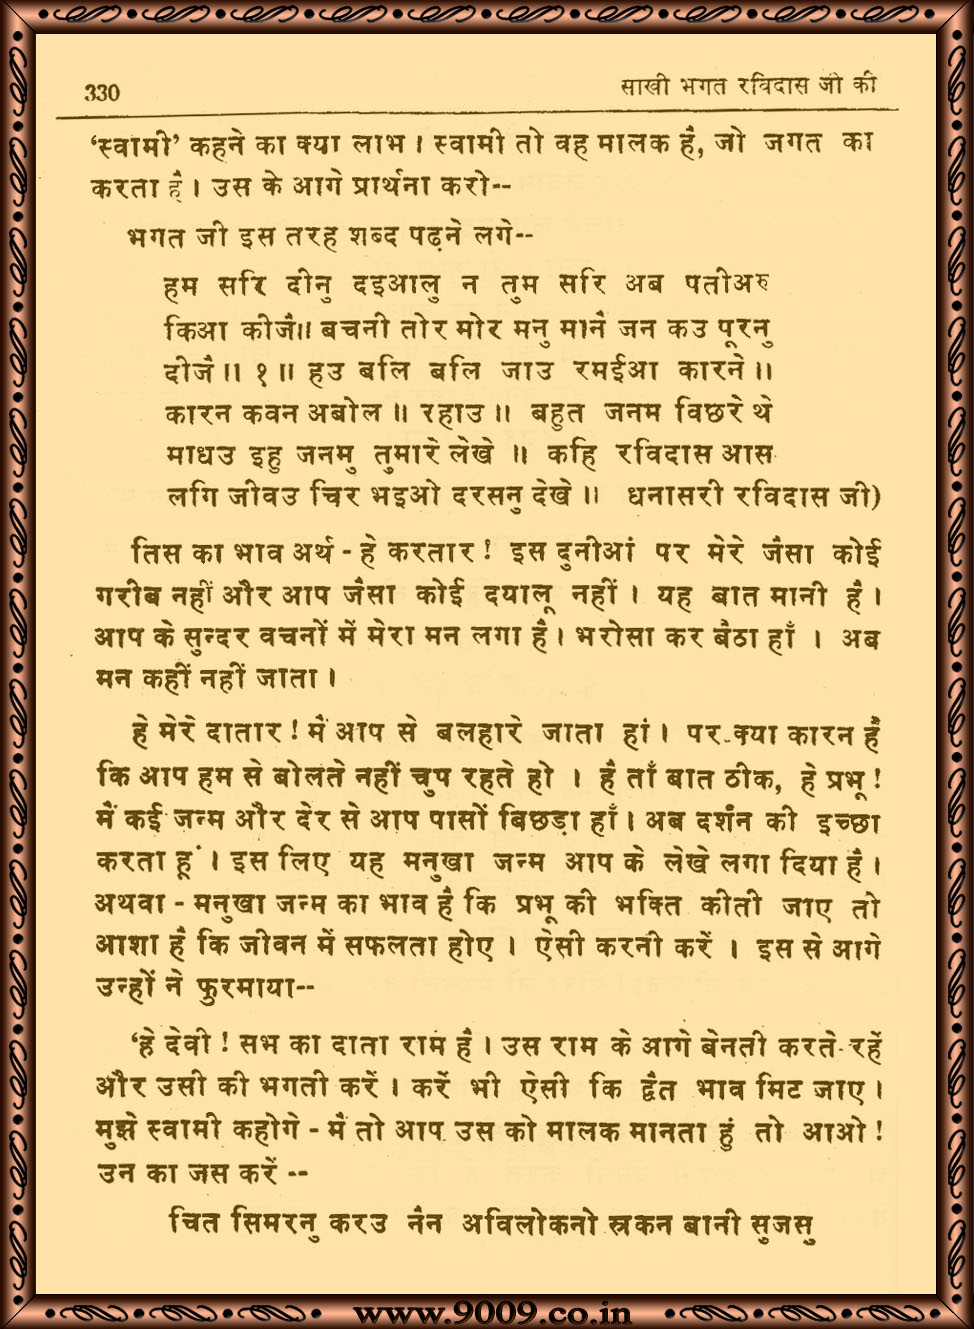 330
साखी भगत रविदास जी की
‘स्वामी’ कहने का क्या लाभ । स्वामी तो वह मालक है, जो जगत का
करता है । उस के आगे प्रार्थना करो--
भगत जी इस तरह शब्द पढ़ने लगे--
हम सरि दीनु दइआलु न तुम सरि अब पतीअरु
किआ कीजै॥ बचनी तोर मोर मनु मानै जन कउ पूरनु
दीजै ॥ १ ॥ हउ बलि बलि जाउ रमईआ कारने ॥
कारन कवन अबोल ॥ रहाउ ॥ बहुत जनम विछरे थे
माधउ इहु जनमु तुमारे लेखे ॥ कहि रविदास आस
लगि जीवउ चिर भइओ दरसनु देखे ॥ धनासरी रविदास जी)
तिस का भाव अर्थ - हे करतार ! इस दुनीआं पर मेरे जैसा कोई
गरीब नहीं और आप जैसा कोई दयालू नहीं । यह बात मानी है ।
आप के सुन्दर वचनों में मेरा मन लगा है । भरोसा कर बैठा हाँ । अब
मन कहीं नहीं जाता ।
हे मेरे दातार ! मैं आप से बलहारे जाता हां । पर क्या कारन है
कि आप हम से बोलते नहीं चुप रहते हो । है ताँ बात ठीक, हे प्रभू !
मैं कई जन्म और देर से आप पासों बिछड़ा हाँ । अब दर्शन की इच्छा
करता हूं । इस लिए यह मनुखा जन्म आप के लेखे लगा दिया है ।
अथवा - मनुखा जन्म का भाव है कि प्रभू की भक्ति कीती जाए तो
आशा है कि जीवन में सफलता होए । ऐसी करनी करें । इस से आगे
उन्हों ने फुरमाया--
‘हे देवी ! सभ का दाता राम है । उस राम के आगे बेनती करते रहें
और उसी की भगती करें । करें भी ऐसी कि द्वैत भाव मिट जाए ।
मुझे स्वामी कहोगे - मैं तो आप उस को मालक मानता हुं तो आओ !
उन का जस करें --
चित सिमरनु करउ नैन अविलोकनो स्रकन बानी सुजसु
www.9009.co.in